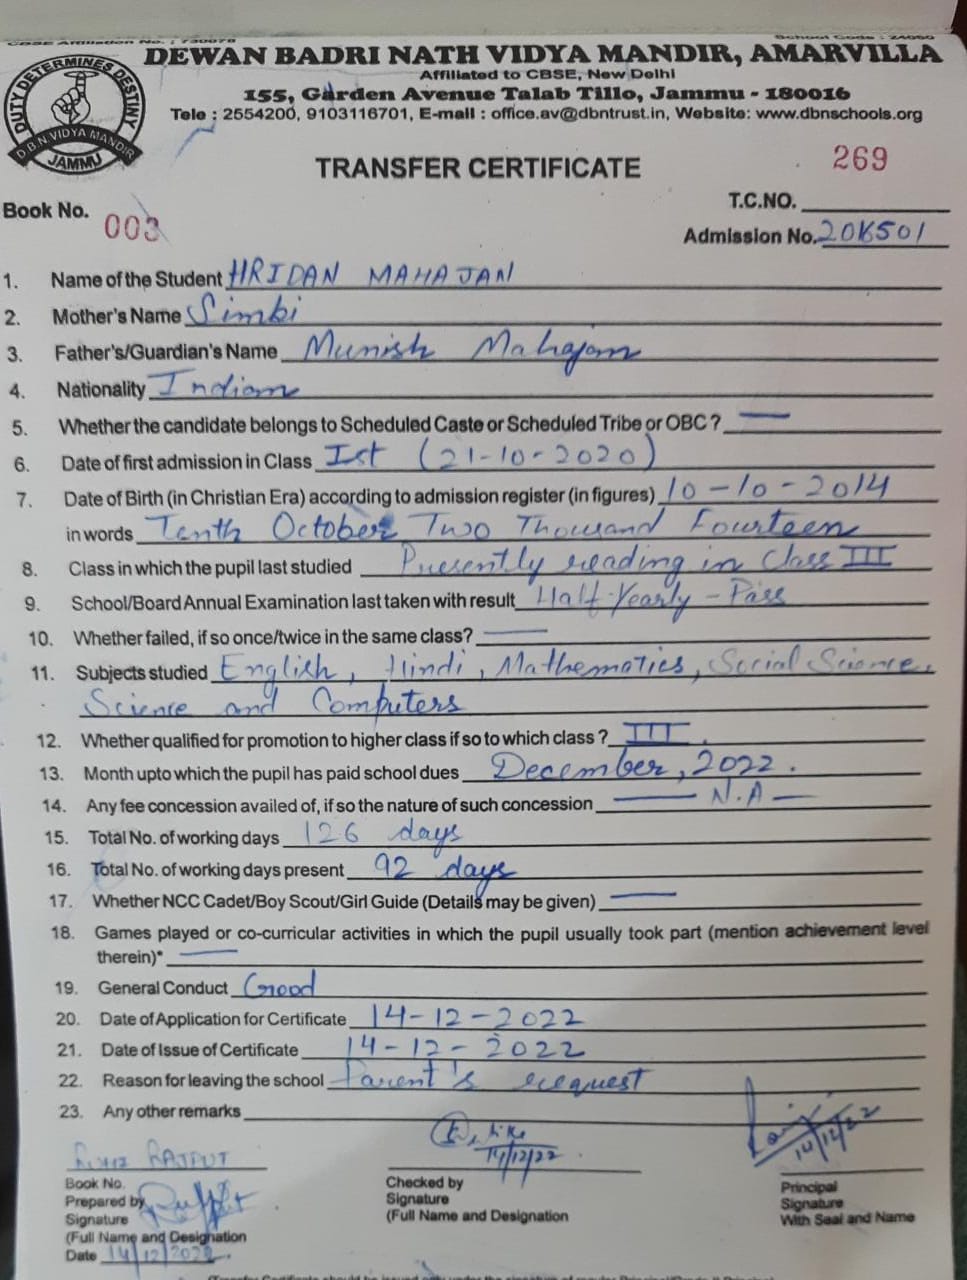 CBSE Affiliation No. : 730078 School Code : 24080
DEWAN BADRI NATH VIDYA MANDIR, AMARVILLA
Affiliated to CBSE, New Delhi
155, Garden Avenue Talab Tillo, Jammu - 180016
Tele : 2554200, 9103116701, E-mail : office.av@dbntrust.in, Website: www.dbnschools.org
DUTY DETERMINES DESTINY
D.B.N. VIDYA MANDIR
JAMMU
TRANSFER CERTIFICATE
269
Book No. 003 T.C.NO.
Admission No. 20K501
1. Name of the Student HRIDAN MAHAJAN
2. Mother's Name Simbi
3. Father's/Guardian's Name Munish Mahajan
4. Nationality Indian
5. Whether the candidate belongs to Scheduled Caste or Scheduled Tribe or OBC ? —
6. Date of first admission in Class Ist (21-10-2020)
7. Date of Birth (in Christian Era) according to admission register (in figures) 10-10-2014
in words Tenth October Two Thousand Fourteen
8. Class in which the pupil last studied Presently reading in Class III
9. School/Board Annual Examination last taken with result Half Yearly - Pass
10. Whether failed, if so once/twice in the same class? —
11. Subjects studied English, Hindi, Mathematics, Social Science,
Science and Computers
12. Whether qualified for promotion to higher class if so to which class ? III.
13. Month upto which the pupil has paid school dues December, 2022.
14. Any fee concession availed of, if so the nature of such concession — N.A —
15. Total No. of working days 126 days
16. Total No. of working days present 92 days
17. Whether NCC Cadet/Boy Scout/Girl Guide (Details may be given) —
18. Games played or co-curricular activities in which the pupil usually took part (mention achievement level
therein)* —
19. General Conduct Good
20. Date of Application for Certificate 14-12-2022
21. Date of Issue of Certificate 14-12-2022
22. Reason for leaving the school Parent's request
23. Any other remarks
RAJPUT
14/12/22
14/12/22
Book No.
Prepared by
Signature
(Full Name and Designation
Date 14/12/2022.
Checked by
Signature
(Full Name and Designation
Principal
Signature
With Seal and Name